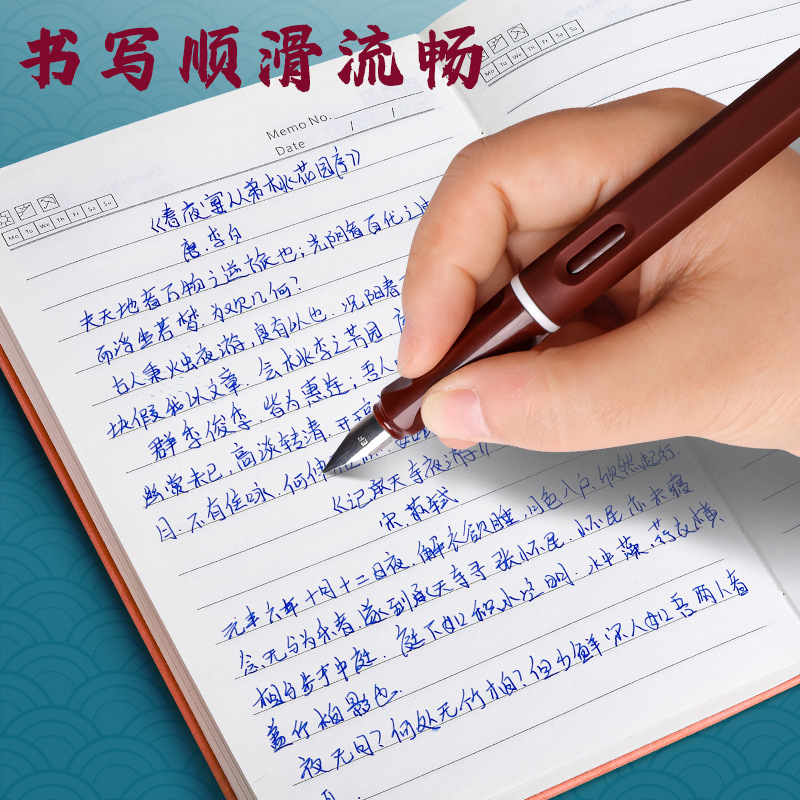 书写顺滑流畅
Memo No.
Date / /
Mo Tu We Th Fr Sa Su
Mo Tu We Th Fr Sa Su
《春夜宴从弟桃花园序》
唐·李白
夫天地者万物之逆旅也；光阴者百代之过
而浮生若梦，为欢几何？
古人秉烛夜游，良有以也。况阳春
块假我以文章。会桃李之芳园，序
群季俊秀，皆为惠连；吾人
幽赏未已，高谈转清。开琼
目．不有佳咏，何伸
《记承天寺夜游》
宋 苏轼
元丰六年十月十二日夜，解衣欲睡，月色入户，欣然起行．
念无与为乐者，遂到承天寺寻张怀民．怀民亦未寝
相与步于中庭．庭下如积水空明．水中藻、荇交横
盖竹柏影也．
夜无月？何处无竹柏？但少闲人如吾两人者